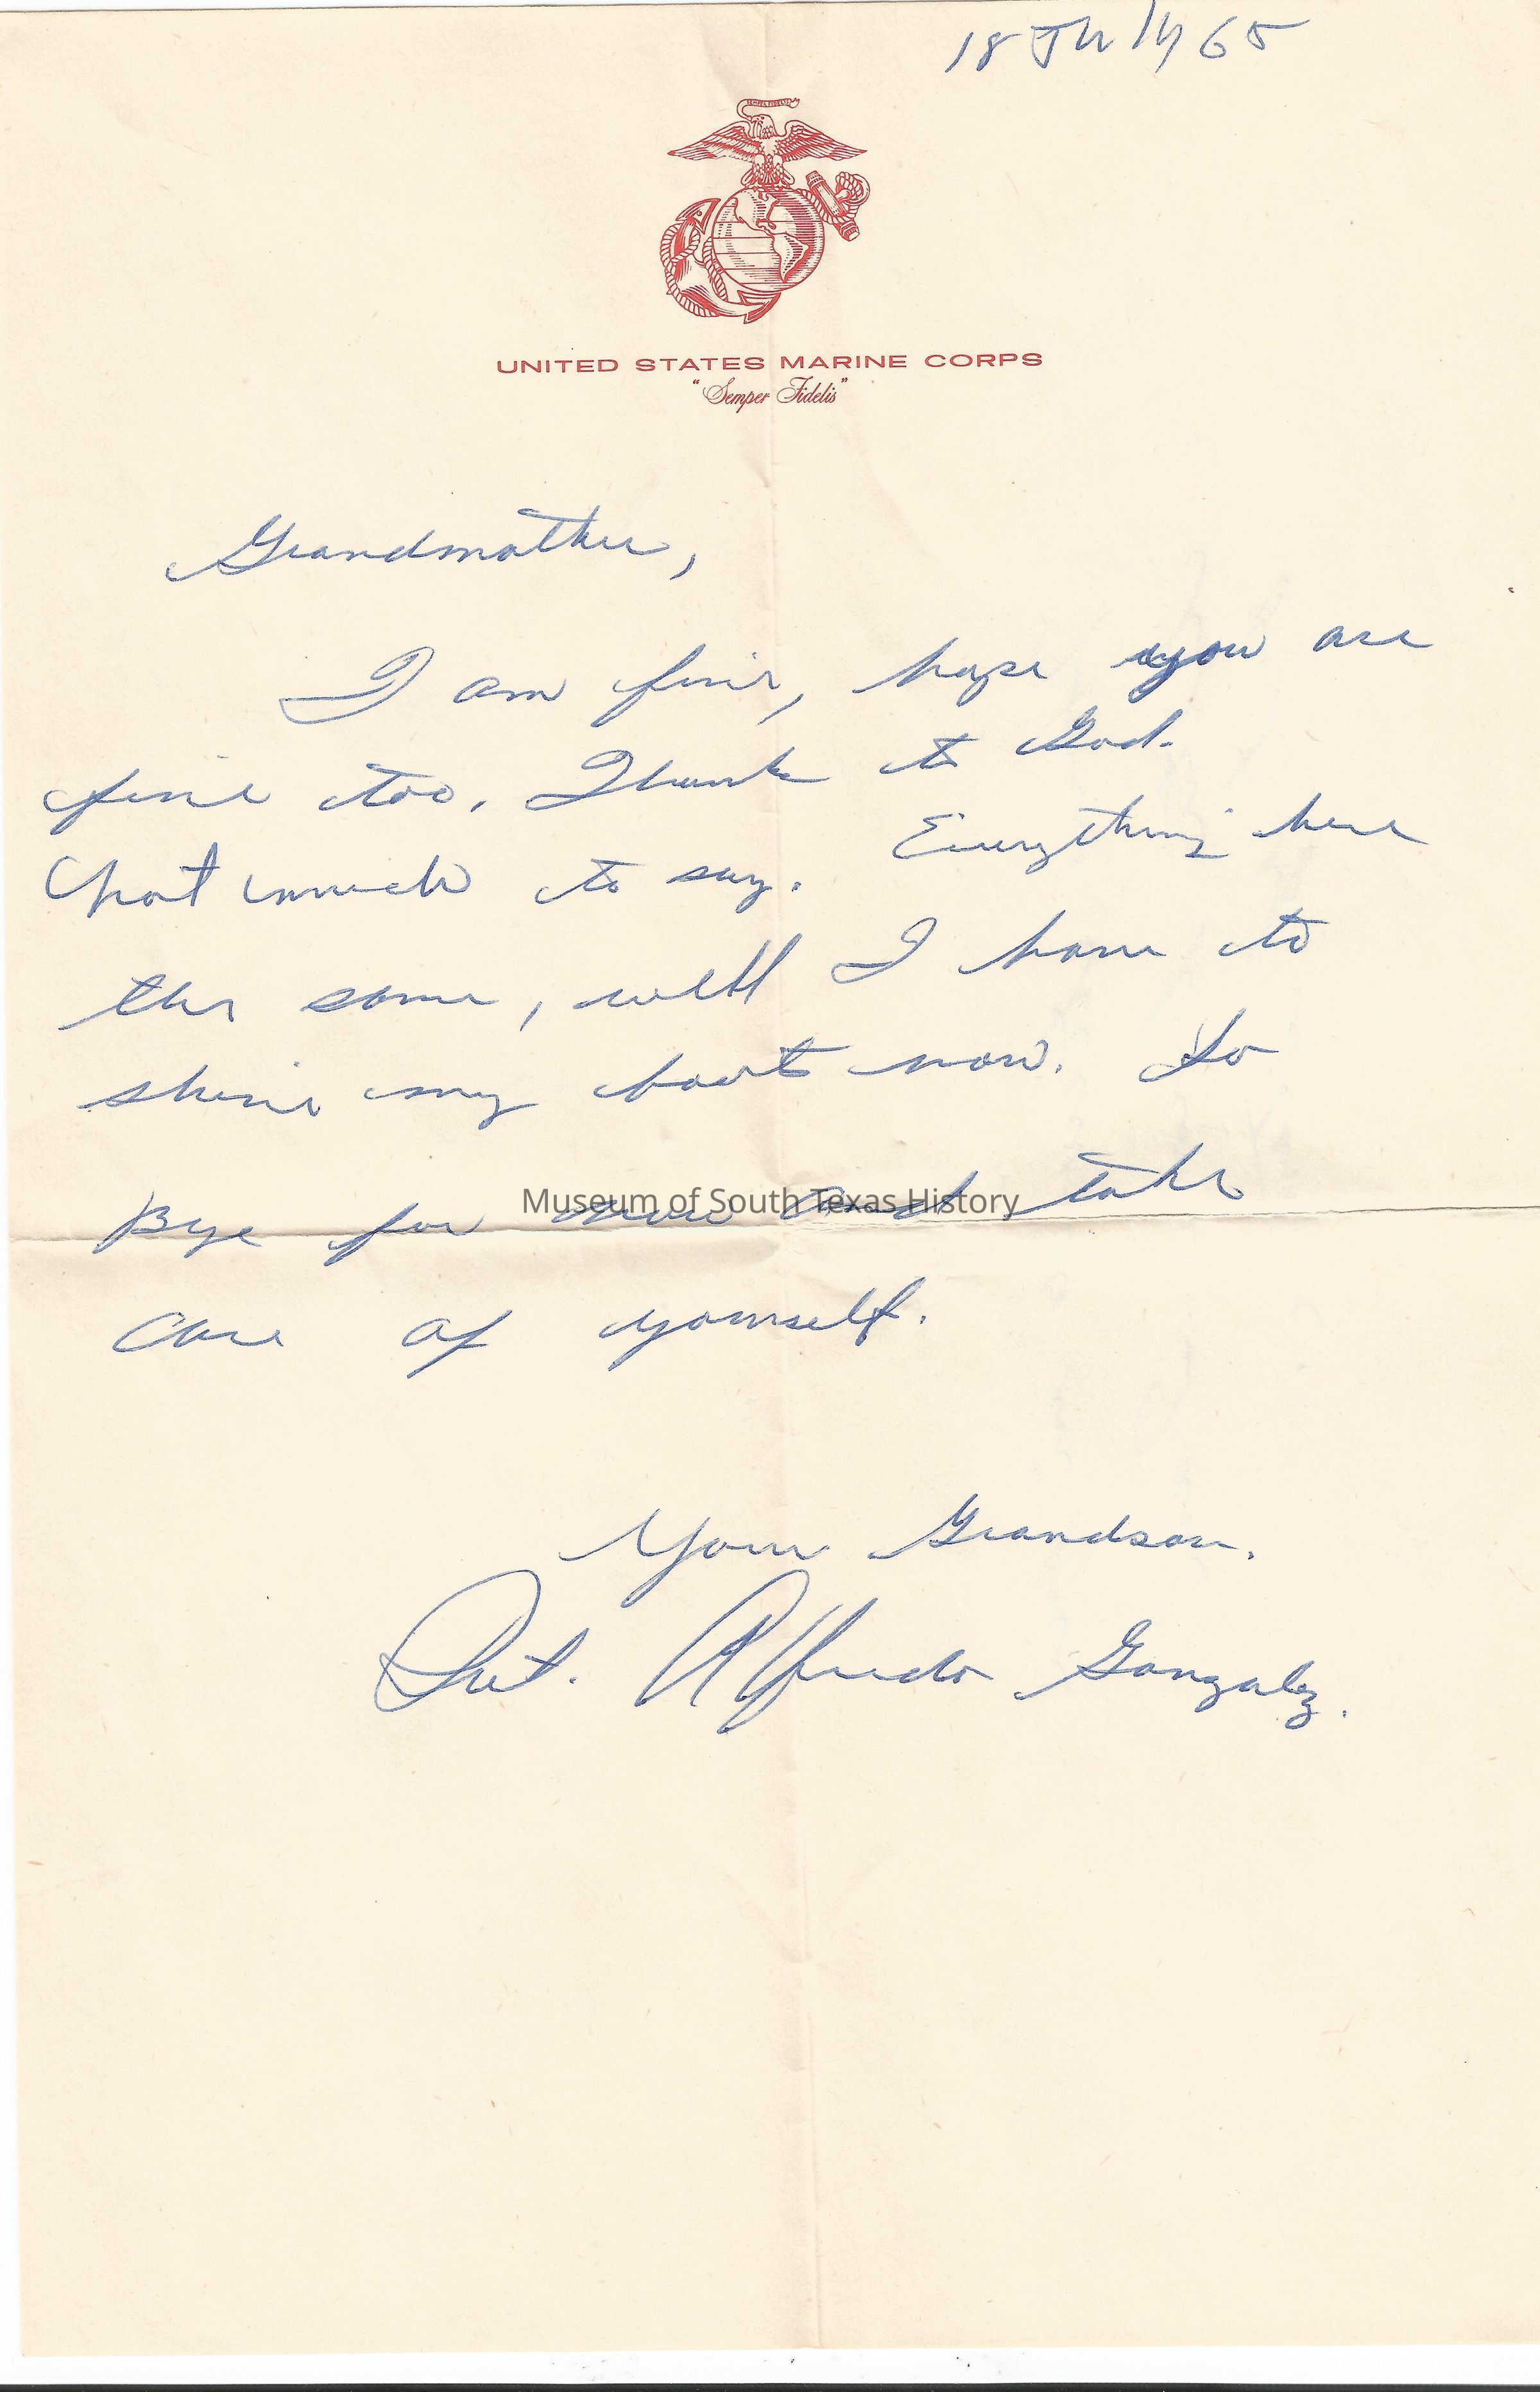 18 July 65
SEMPER FIDELIS
UNITED STATES MARINE CORPS
"Semper Fidelis"
Grandmother,
I am fine, hope you are
fine too. Thank to God.
Not much to say. Everything here
the same, well I have to
shine my boot now. So
Bye for now and take
Museum of South Texas History
Care of yourself.
Your Grandson.
Pvt. Alfredo Gonzalez.